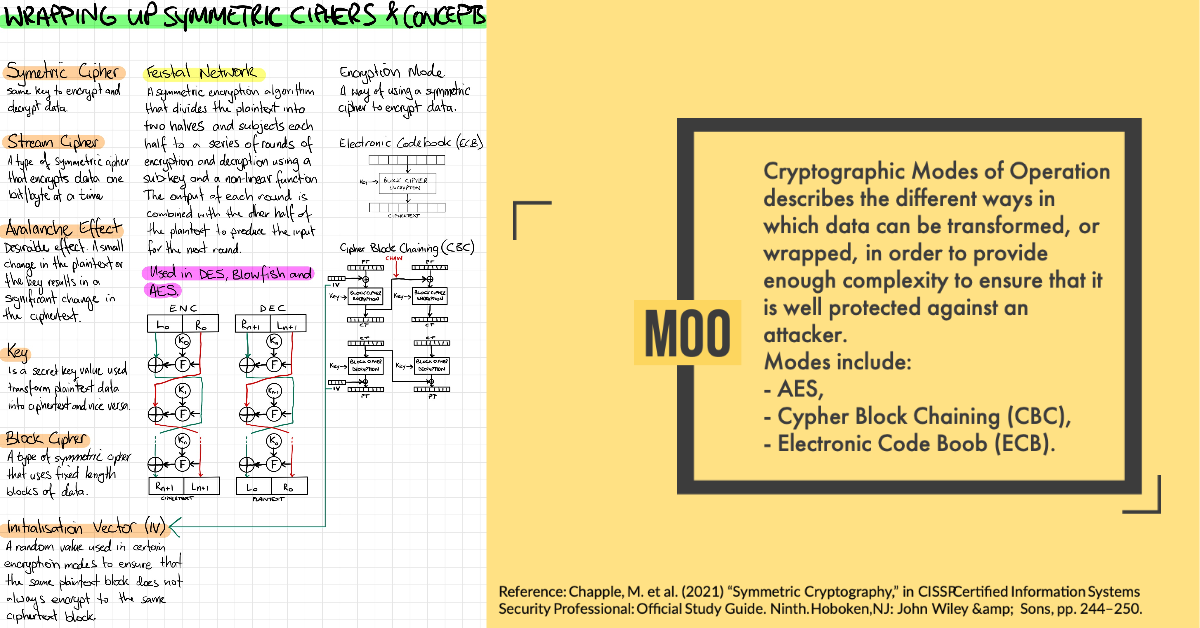 WRAPPING UP SYMMETRIC CIPHERS & CONCEPTS
Symetric Cipher
same key to encrypt and
decrypt data.
Stream Cipher
A type of symmetric cipher
that encrypts data one
bit/byte at a time
Avalanche Effect
Desirable effect. A small
change in the plaintext or
the key results in a
significant change in
the ciphertext.
Key
Is a secret key value used
transform plaintext data
into ciphertext and vice versa.
Block Cipher
A type of symmetric cipher
that uses fixed length
blocks of data.
Initialisation Vector (IV)
A random value used in certain
encryption modes to ensure that
the same plaintext block does not
always encrypt to the same
ciphertext block.
Feistal Network
A symmetric encryption algorithm
that divides the plaintext into
two halves and subjects each
half to a series of rounds of
encryption and decryption using a
subkey and a non-linear function
The output of each round is
combined with the other half of
the plaintext to produce the input
for the next round.
Used in DES, Blowfish and
AES.
ENC
L0 R0
K0
F
K1
F
Kn
F
Rn+1 Ln+1
CIPHERTEXT
DEC
Rn+1 Ln+1
Kn
F
Kn-1
F
K0
F
L0 R0
PLAINTEXT
Encryption Mode
A way of using a symmetric
cipher to encrypt data.
Electronic Codebook (ECB)
Key
BLOCK CIPHER
ENCRYPTION
CIPHERTEXT
Cipher Block Chaining (CBC)
PT CHAIN PT
IV
Key BLOCK CIPHER ENCRYPTION Key BLOCK CIPHER ENCRYPTION
CT CT
CT CT
Key BLOCK CIPHER DECRYPTION Key BLOCK CIPHER DECRYPTION
IV
PT PT
MOO
Cryptographic Modes of Operation
describes the different ways in
which data can be transformed, or
wrapped, in order to provide
enough complexity to ensure that it
is well protected against an
attacker.
Modes include:
- AES,
- Cypher Block Chaining (CBC),
- Electronic Code Boob (ECB).
Reference: Chapple, M. et al. (2021) “Symmetric Cryptography,” in CISSP Certified Information Systems
Security Professional: Official Study Guide. Ninth. Hoboken, NJ: John Wiley &amp; Sons, pp. 244–250.